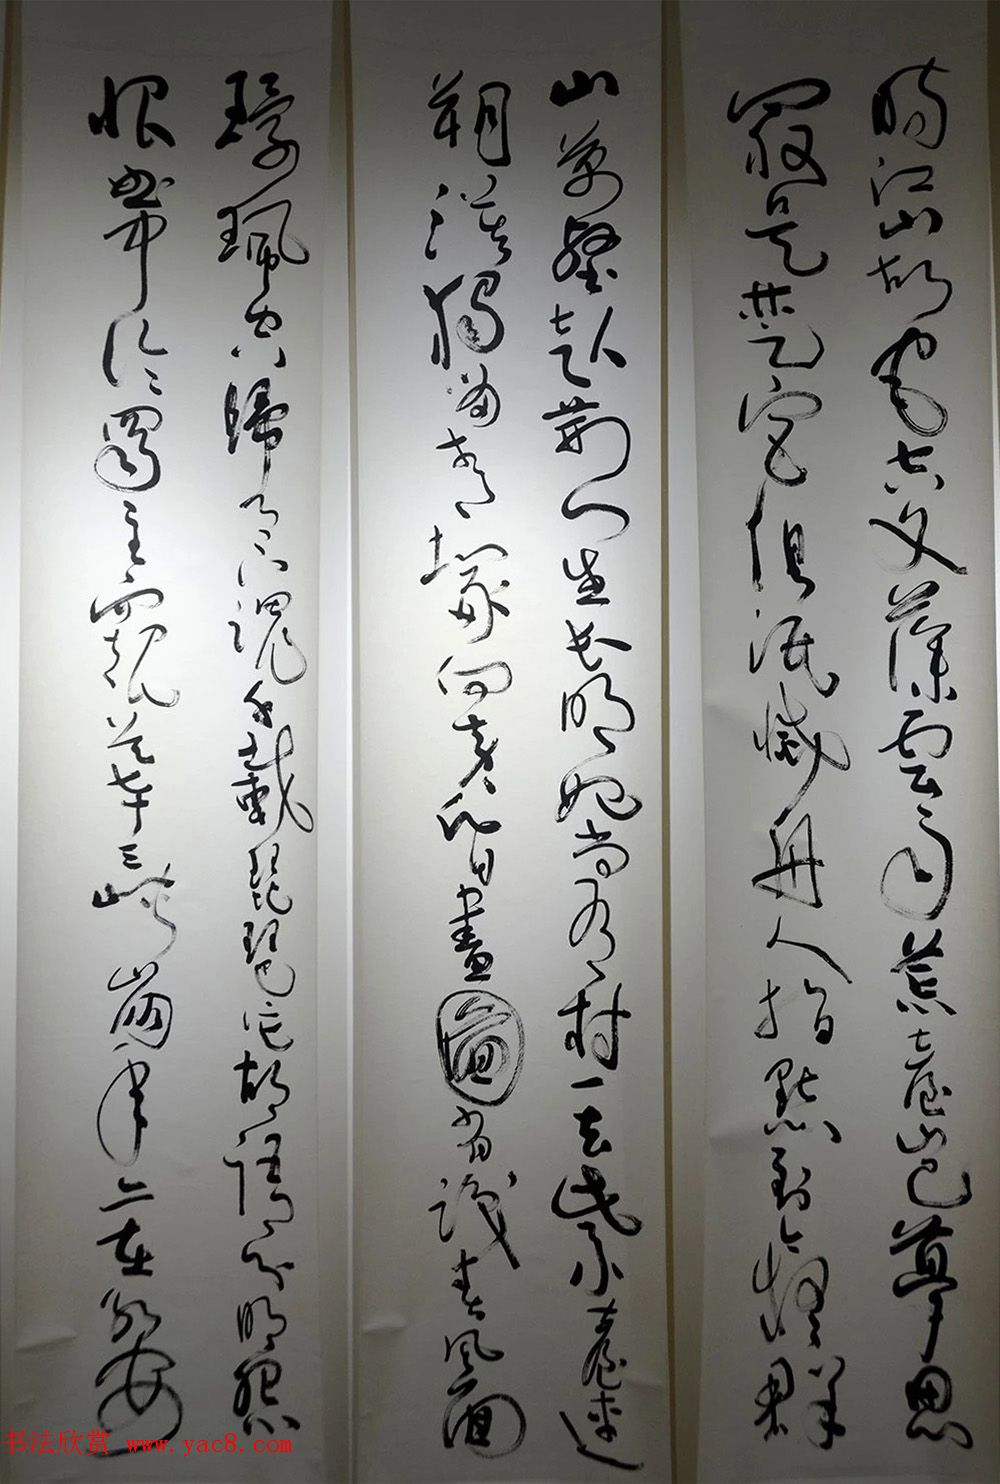 時江山故宅空文藻雲雨荒臺豈夢思
最是楚宮俱泯滅舟人指點到今疑羣
山萬壑赴荊門生長明妃尚有村一去紫臺連
朔漠獨留青塚向黃昏畫圖省識春風面
環珮空歸月魂千載琵琶作胡語分明怨
恨曲中論蜀主窺吳幸三峽崩年亦在永安
书法欣赏 www.yac8.com